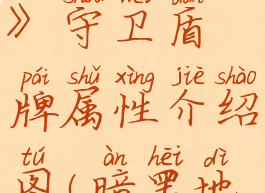 》守卫盾
pái shǔ xìng jiè shào
牌属性介绍
tú àn hēi dì
图(暗黑地